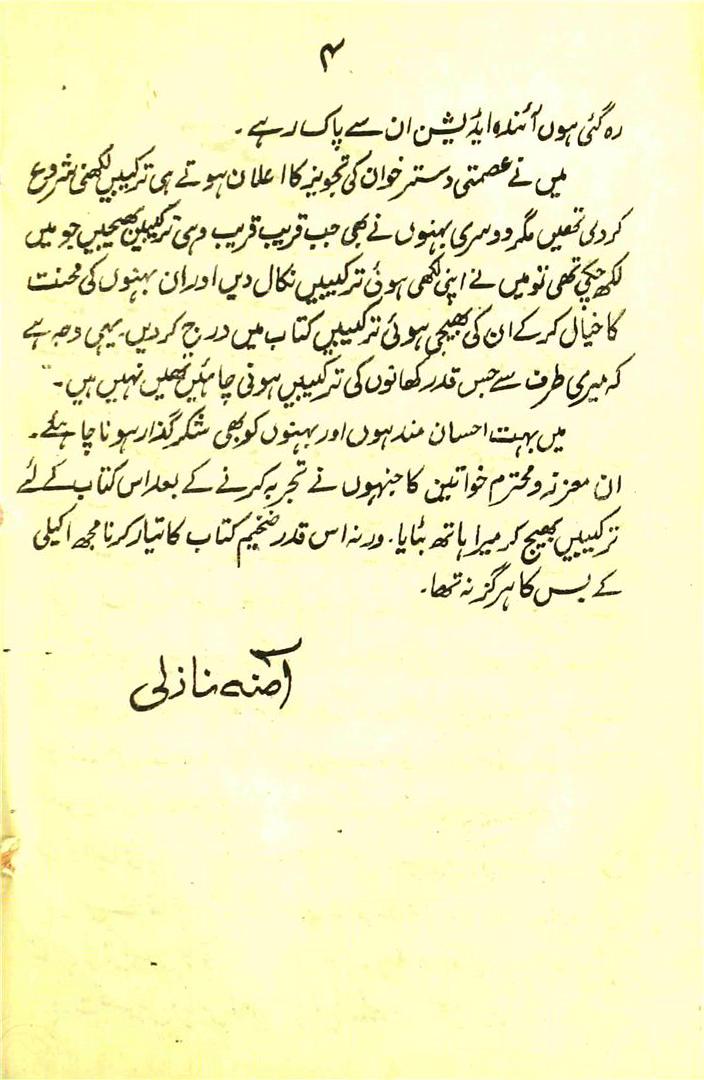 ۴
رہ گئی ہوں آئندہ ایڈیشن ان سے پاک رہے ۔
میں نے عصمتی دسترخوان کی تجویز کا اعلان ہوتے ہی ترکیبیں لکھنی شروع
کردی تھیں مگر دوسری بہنوں نے بھی جب قریب قریب وہی ترکیبیں بھیجیں جو میں
لکھ چکی تھی تو میں نے اپنی لکھی ہوئی ترکیبیں نکال دیں اور ان بہنوں کی محنت
کا خیال کرکے ان کی بھیجی ہوئی ترکیبیں کتاب میں درج کردیں۔ یہی وجہ ہے
کہ میری طرف سے جس قدر کھانوں کی ترکیبیں ہونی چاہئیں تھیں نہیں ہیں۔
میں بہت احسان مند ہوں اور بہنوں کو بھی شکر گذار ہونا چاہئے۔
ان معزز و محترم خواتین کا جنہوں نے تجربہ کرنے کے بعد اس کتاب کے لئے
ترکیبیں بھیج کر میرا ہاتھ بٹایا۔ ورنہ اس قدر ضخیم کتاب کا تیار کرنا مجھ اکیلی
کے بس کا ہرگز نہ تھا۔
آمنہ نازلی